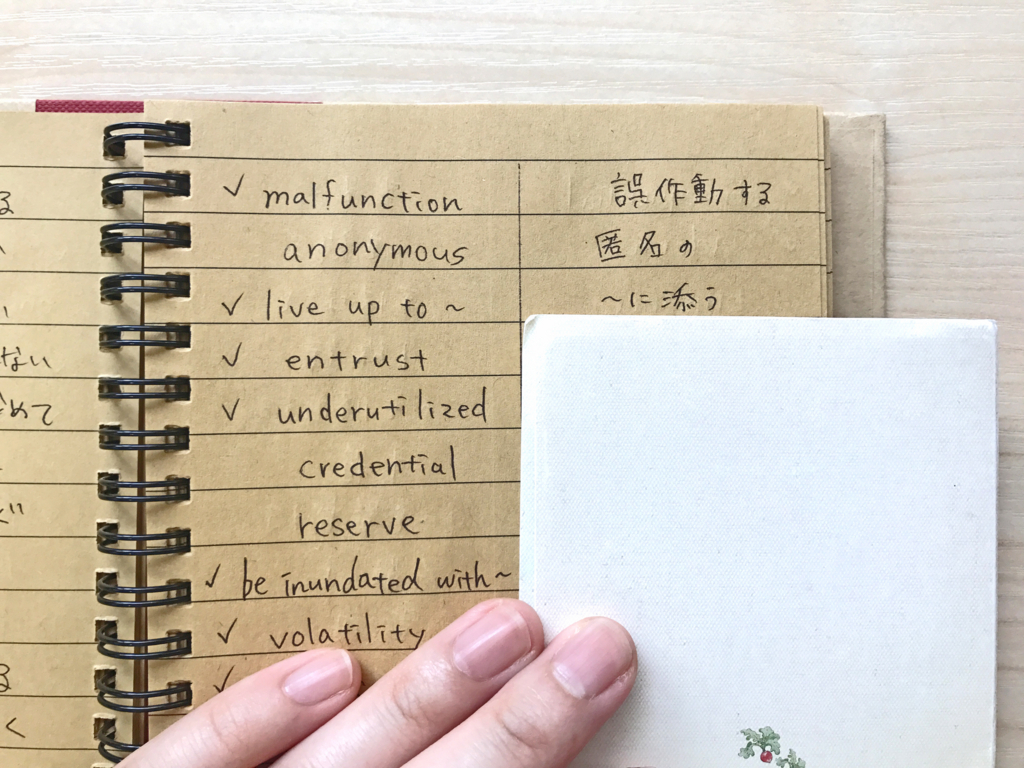 ✓ malfunction 誤作動する
anonymous 匿名の
✓ live up to ~ ~に添う
✓ entrust
✓ underutilized
credential
reserve
✓ be inundated with~
✓ volatility
✓
る
い
ない
めて
る
く